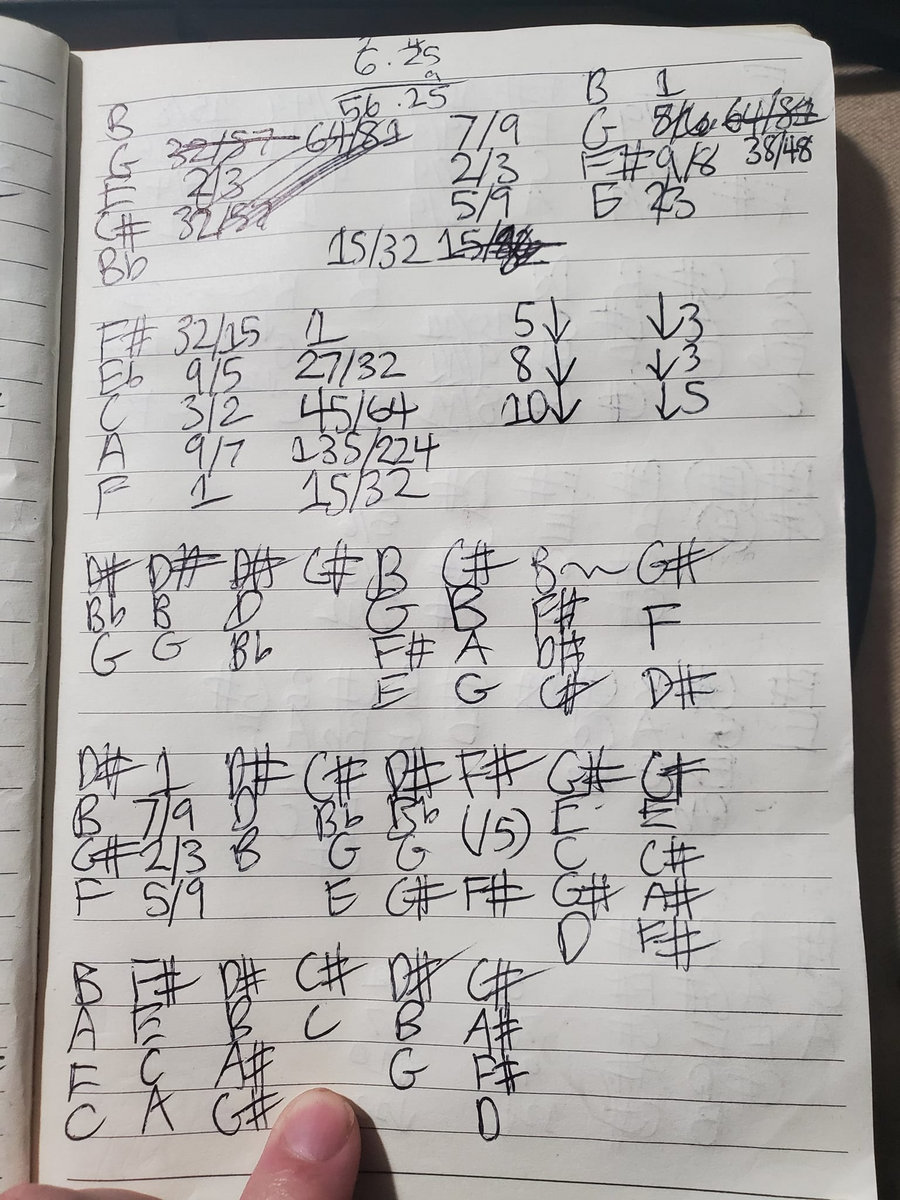 6.25
9
56.25
B B 1
G 32/57 64/81 7/9 G 64/81
E 2/3 2/3 F# 9/8 38/48
C# 32/57 5/9 E
Bb 15/32
F# 32/15 1 5↓ ↓3
Eb 9/5 27/32 8↓ ↓3
C 3/2 45/64 10↓ ↓5
A 9/7 135/224
F 1 15/32
D# D# D# G# B C# B G#
Bb B D G B F# F
G G Bb F# A D#
E G C# D#
D# 1 D# C# D# F# G# G#
B 7/9 D Bb Bb (/5) E E
G# 2/3 B G G C C#
F 5/9 E G# F# G# A#
D F#
B F# D# C# D# C#
A E B C B A#
F C A# G F#
C A G# D